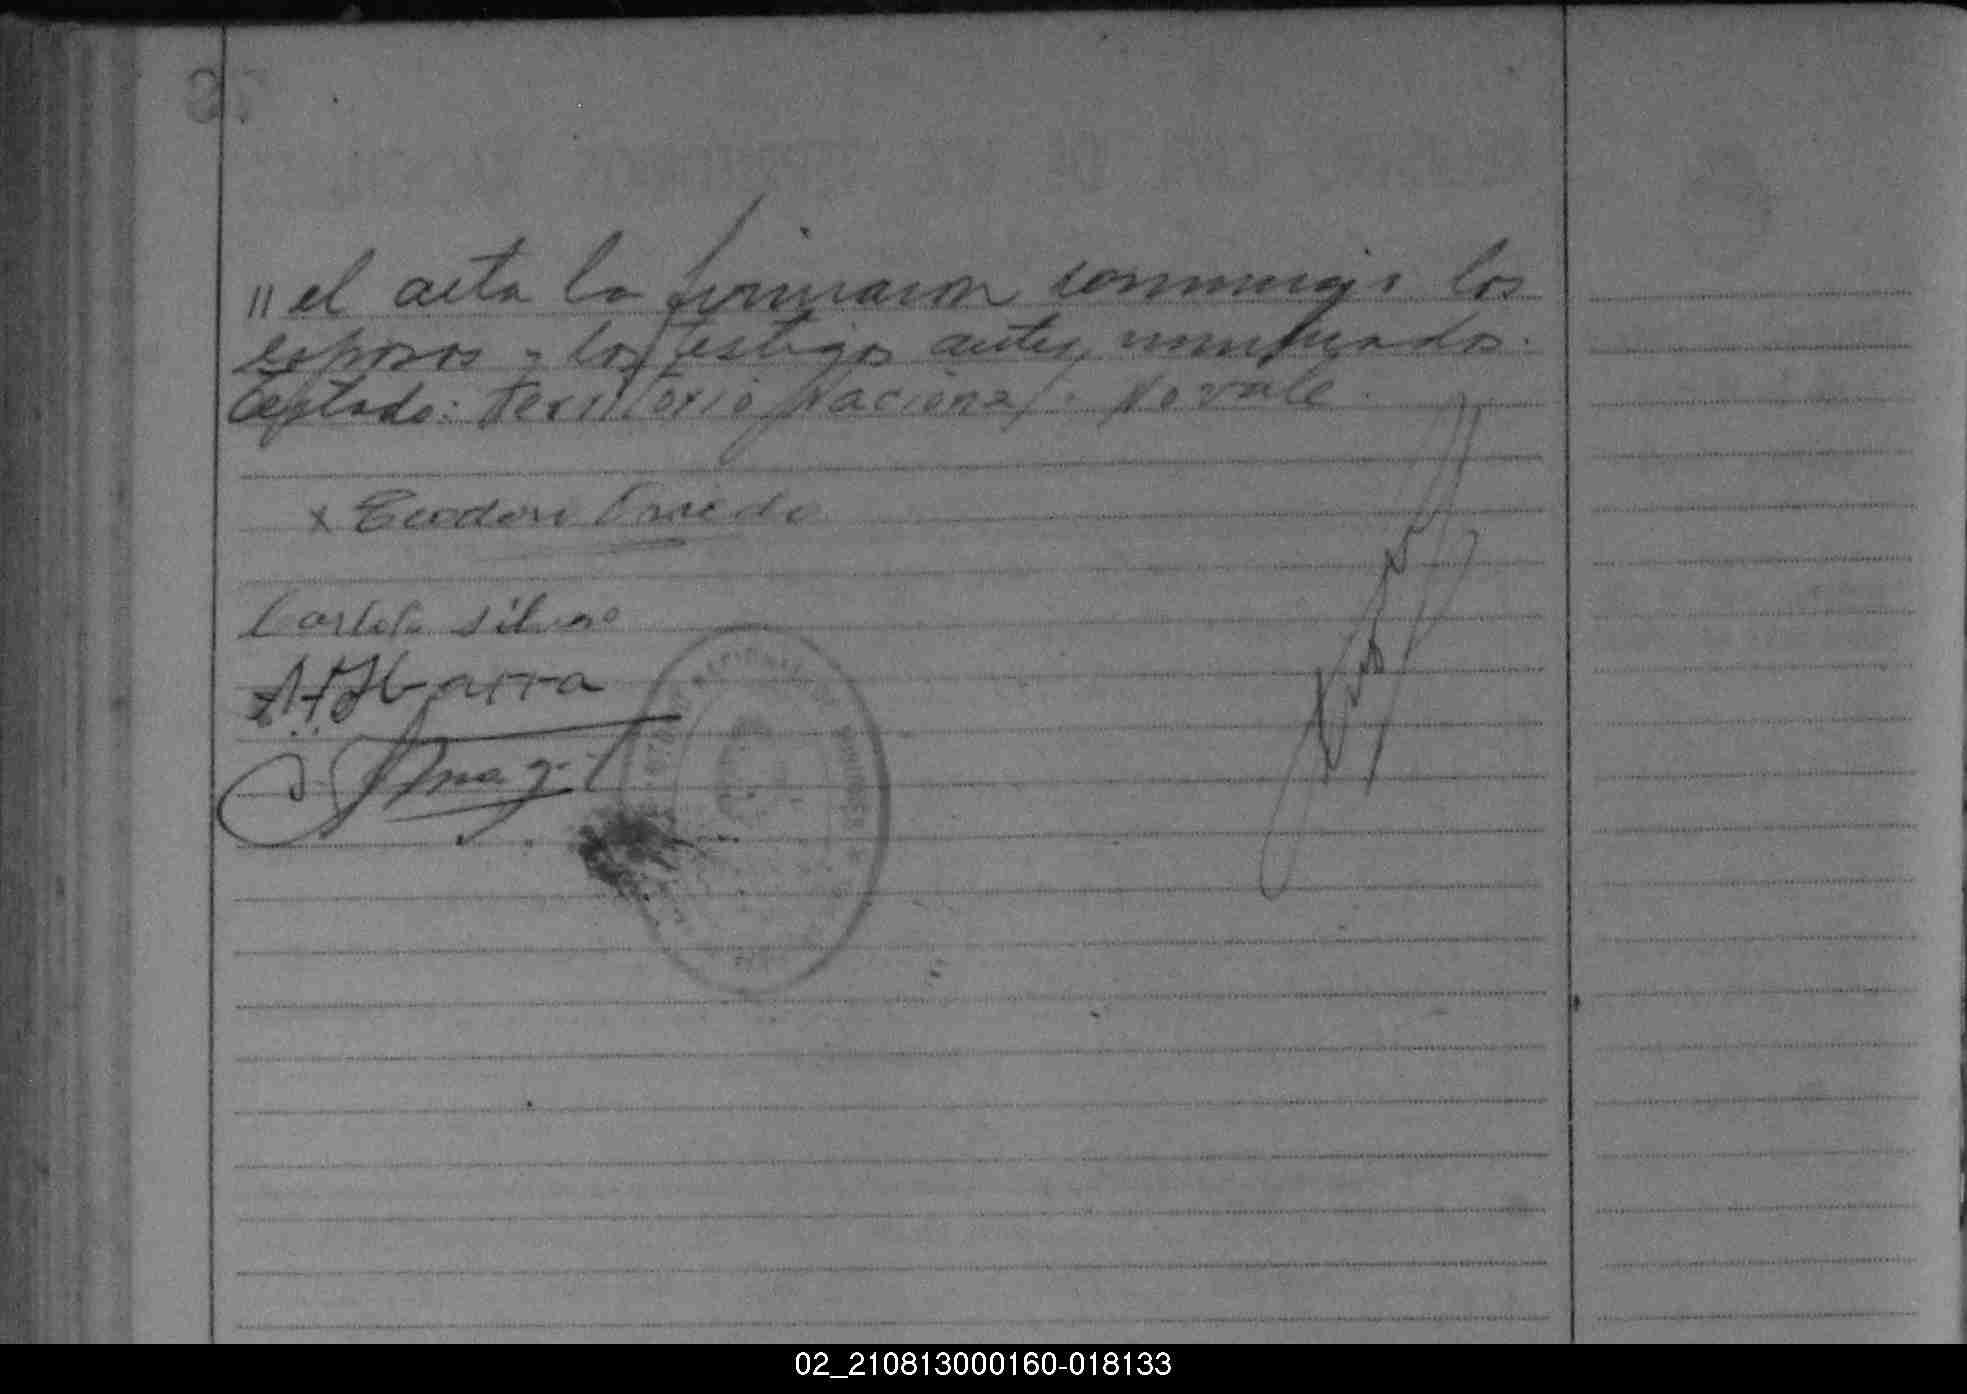 " el acta la firmaron conmigo los
esposos y los testigos antes, nombrados.
Testado: territorio Nacional. No vale.
x Teodoro Oviedo
Carlota Silva
A. F. Ibarra
02_210813000160-018133